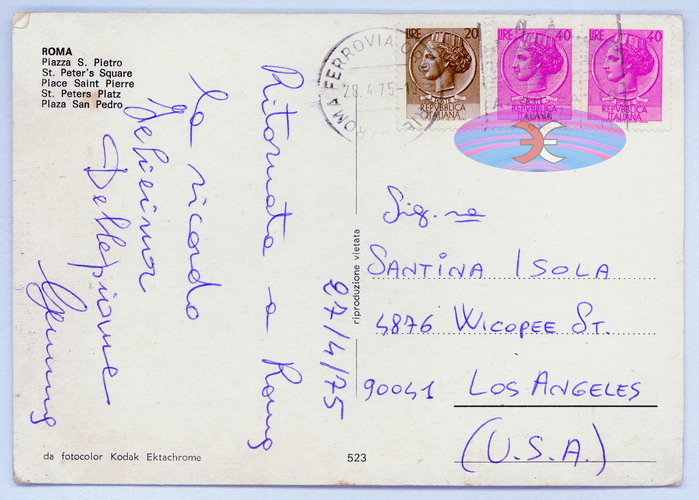 ROMA
Piazza S. Pietro
St. Peter's Square
Place Saint Pierre
St. Peters Platz
Plaza San Pedro
ROMA FERROVIA
28.4.75
LIRE 20
POSTE
REPVBBLICA
ITALIANA
LIRE 40
POSTE
REPVBBLICA
ITALIANA
LIRE 40
REPVBBLICA
ITALIANA
27/4/75
Ritornata a Roma
la ricordo
Dellepiane
riproduzione vietata
Sig.na
SANTINA ISOLA
4876 WICOPEE ST.
90041 LOS ANGELES
(U.S.A.)
da fotocolor Kodak Ektachrome
523